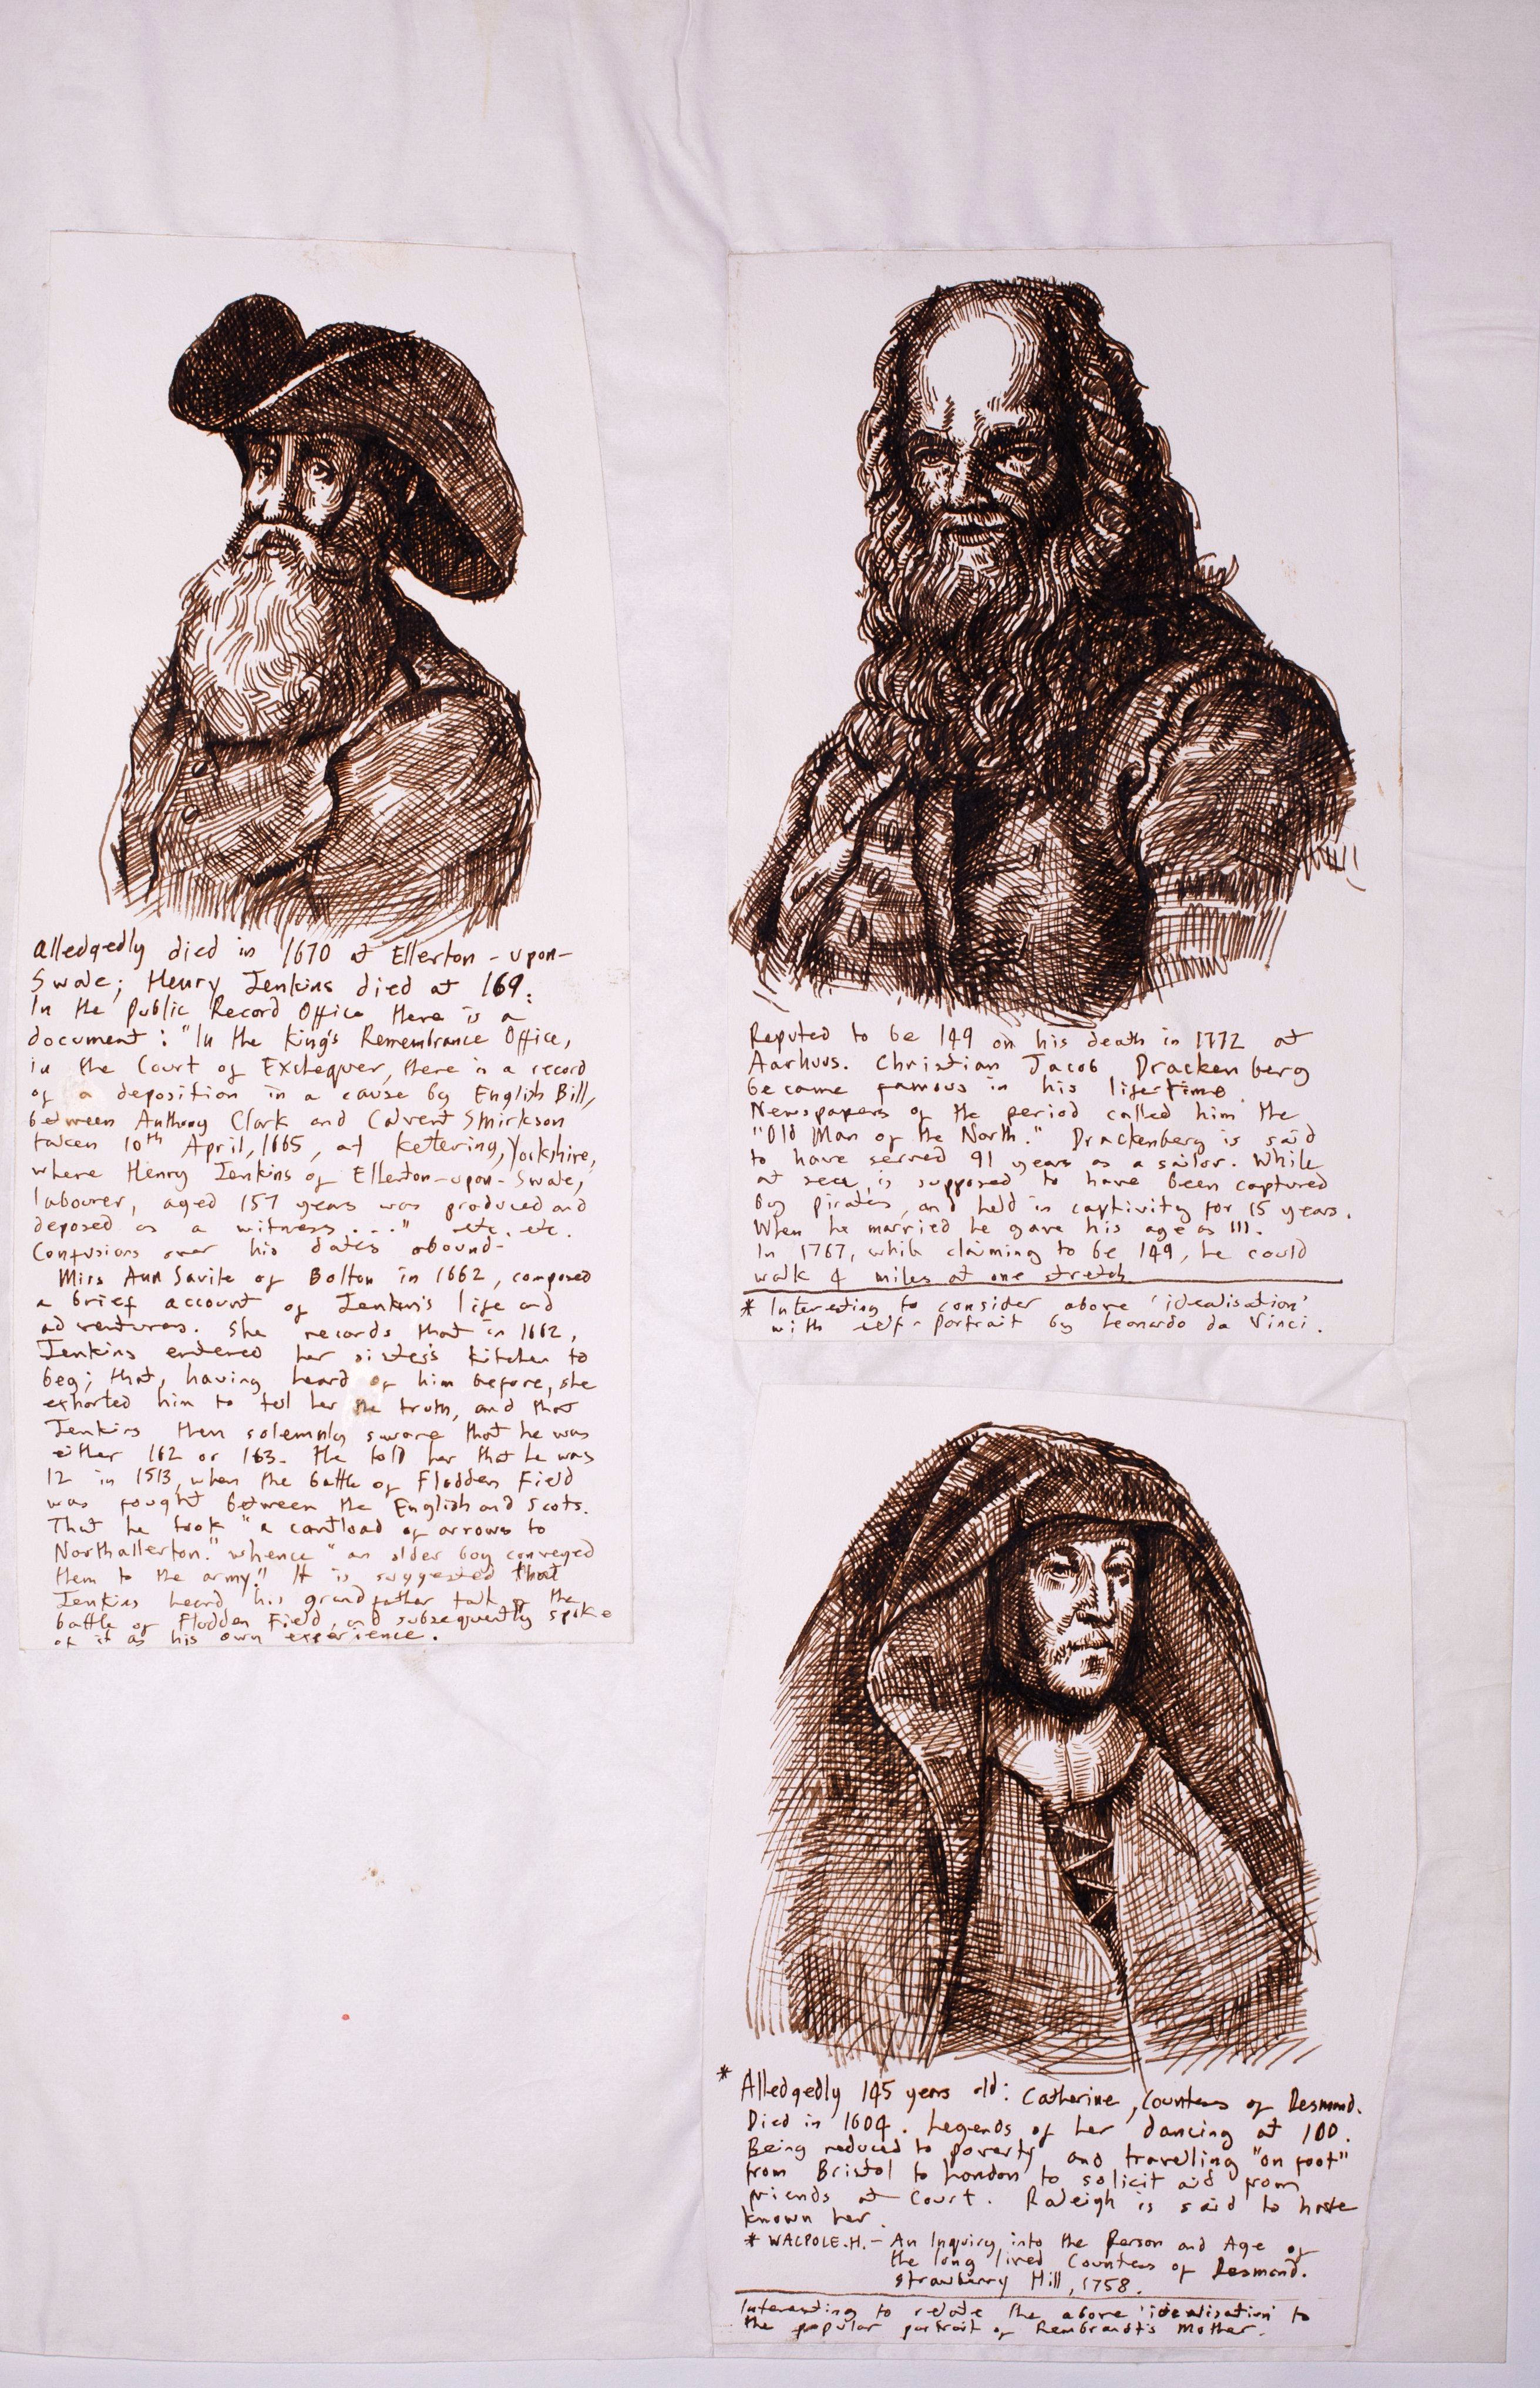 Alledgedly died in 1670 at Ellerton-upon-
Swale; Henry Jenkins died at 169.
In the Public Record Office there is a
document: "In the King's Remembrance Office,
in the Court of Exchequer, there is a record
of a deposition in a cause by English Bill,
between Anthony Clark and Calvert Smirkson
taken 10th April, 1665, at Kettering, Yorkshire,
where Henry Jenkins of Ellerton-upon-Swale,
labourer, aged 157 years was produced and
deposed as a witness . . ." etc. etc.
Confusions over his dates abound-
Miss Ann Savile of Bolton in 1662, composed
a brief account of Jenkin's life and
adventures. She records that in 1662,
Jenkins entered her sister's kitchen to
beg; that, having heard of him before, she
exhorted him to tell her the truth, and that
Jenkins then solemnly swore that he was
either 162 or 163. He told her that he was
12 in 1513, when the battle of Flodden Field
was fought between the English and Scots.
That he took "a cartload of arrows to
Northallerton." whence "an older boy conveyed
them to the army." It is suggested that
Jenkins heard his grandfather talk of the
battle of Flodden Field, and subsequently spoke
of it as his own experience.
Reputed to be 149 on his death in 1772 at
Aarhuus. Christian Jacob Drackenberg
became famous in his lifetime.
Newspapers of the period called him the
"Old Man of the North." Drackenberg is said
to have served 91 years as a sailor. While
at sea, is supposed to have been captured
by pirates, and held in captivity for 15 years.
When he married he gave his age as 111.
In 1767, while claiming to be 149, he could
walk 4 miles at one stretch
* Interesting to consider above 'idealisation'
with self-portrait by Leonardo da Vinci.
* Alledgedly 145 years old: Catherine, Countess of Desmond.
Died in 1604. Legends of her dancing at 100.
Being reduced to poverty and travelling "on foot"
from Bristol to London to solicit aid from
friends at Court. Raleigh is said to have
known her.
* WALPOLE.H.- An Inquiry into the Person and Age of
the long lived Countess of Desmond.
Strawberry Hill, 1758.
Interesting to relate the above 'idealisation' to
the popular portrait of Rembrandt's Mother.